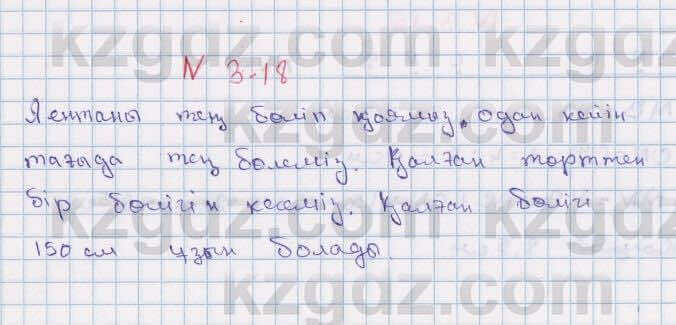 kzgdz.com kzgdz.com
N 3-18
Лентаны тең бөліп қоямыз, одан кейін
тағыда тең бөлеміз. Қалған төрттен
бір бөлігін кесеміз. Қалған бөлігі
150 см ұзын болады.
kzgdz.com